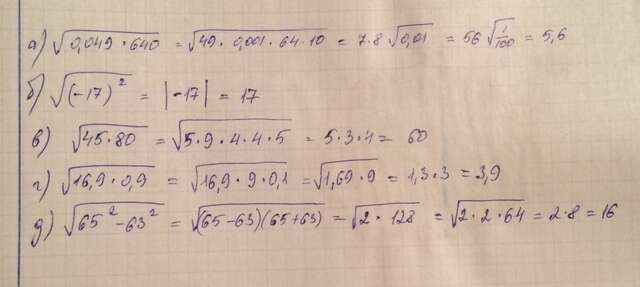 а) √0,049·640 = √49·0,001·64·10 = 7·8√0,01 = 56√1/100 = 5,6
б) √(-17)² = |-17| = 17
в) √45·80 = √5·9·4·4·5 = 5·3·4 = 60
г) √16,9·0,9 = √16,9·9·0,1 = √1,69·9 = 1,3·3 = 3,9
д) √65²-63² = √(65-63)(65+63) = √2·128 = √2·2·64 = 2·8 = 16